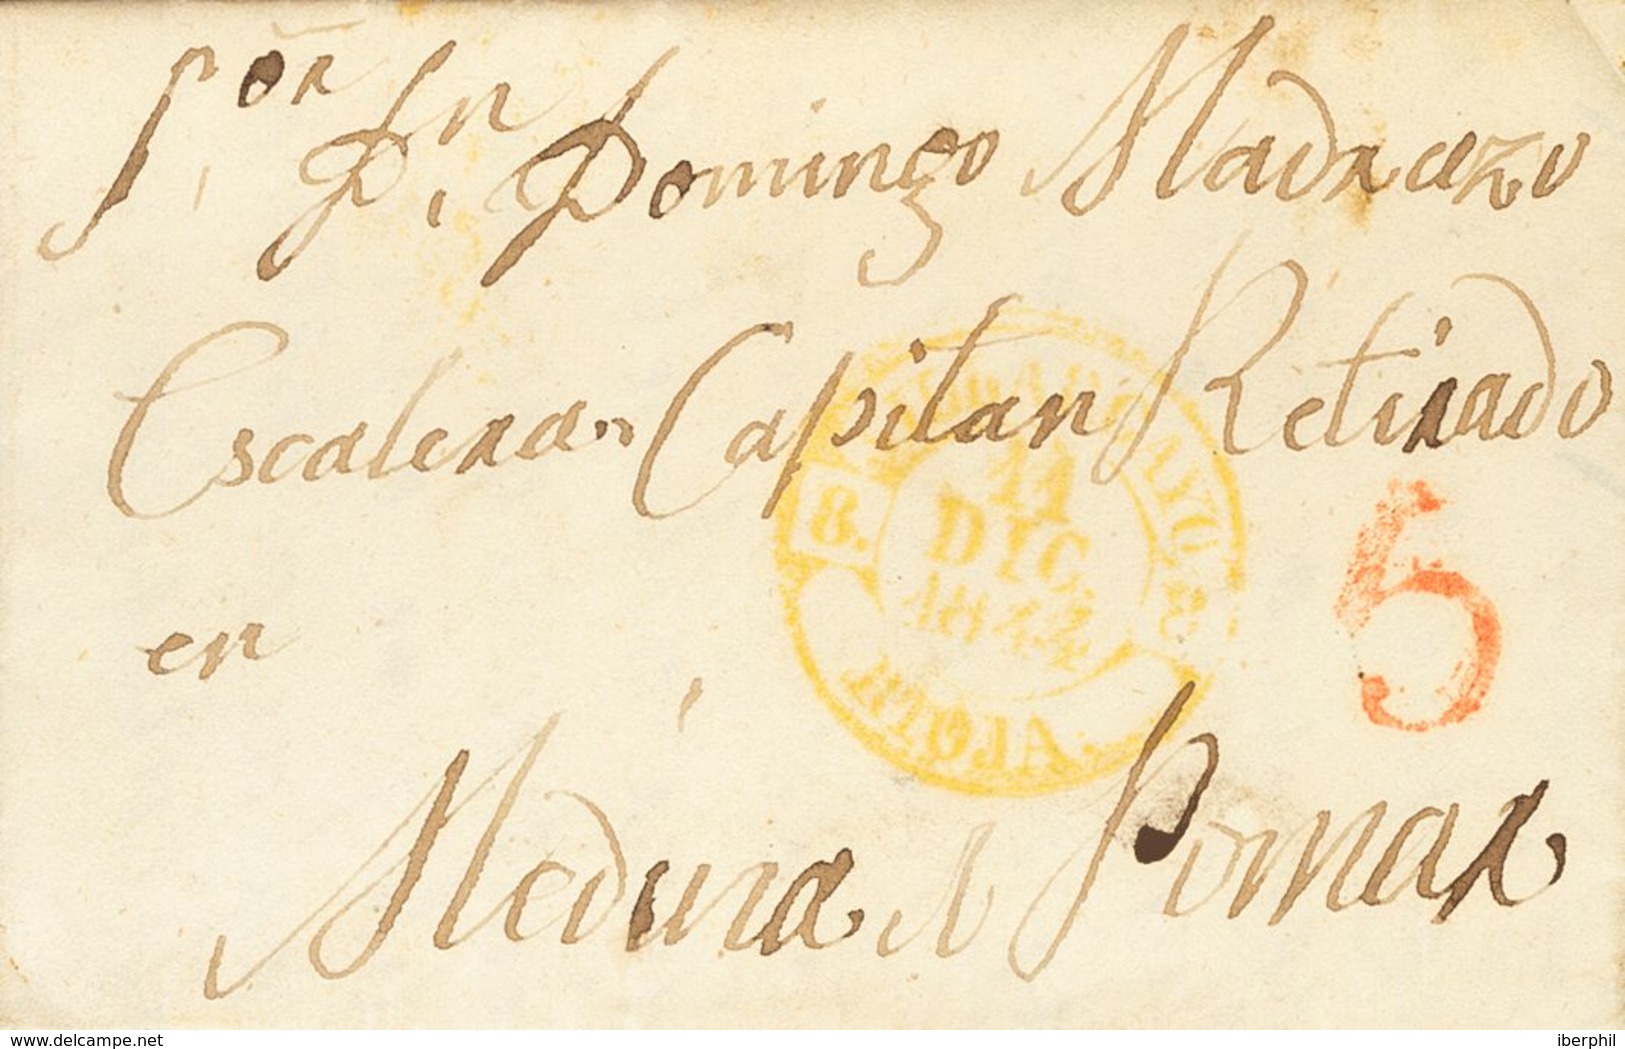 S.or D.n Domingo Madrazo
Escalera, Capitan Retirado
en
Medina d Pomar
8.
11
DIC.
1844
RIOJA.
5
www.delcampe.net
iberphil